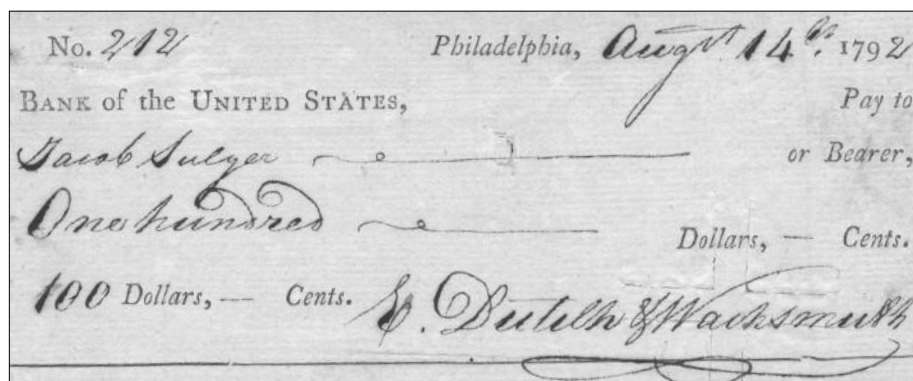 No. 212 Philadelphia, Augst. 14th. 1792
BANK of the UNITED STATES, Pay to
Jacob Sulger or Bearer,
One hundred Dollars, — Cents.
100 Dollars, — Cents. E. Dutilh & Wachsmuth